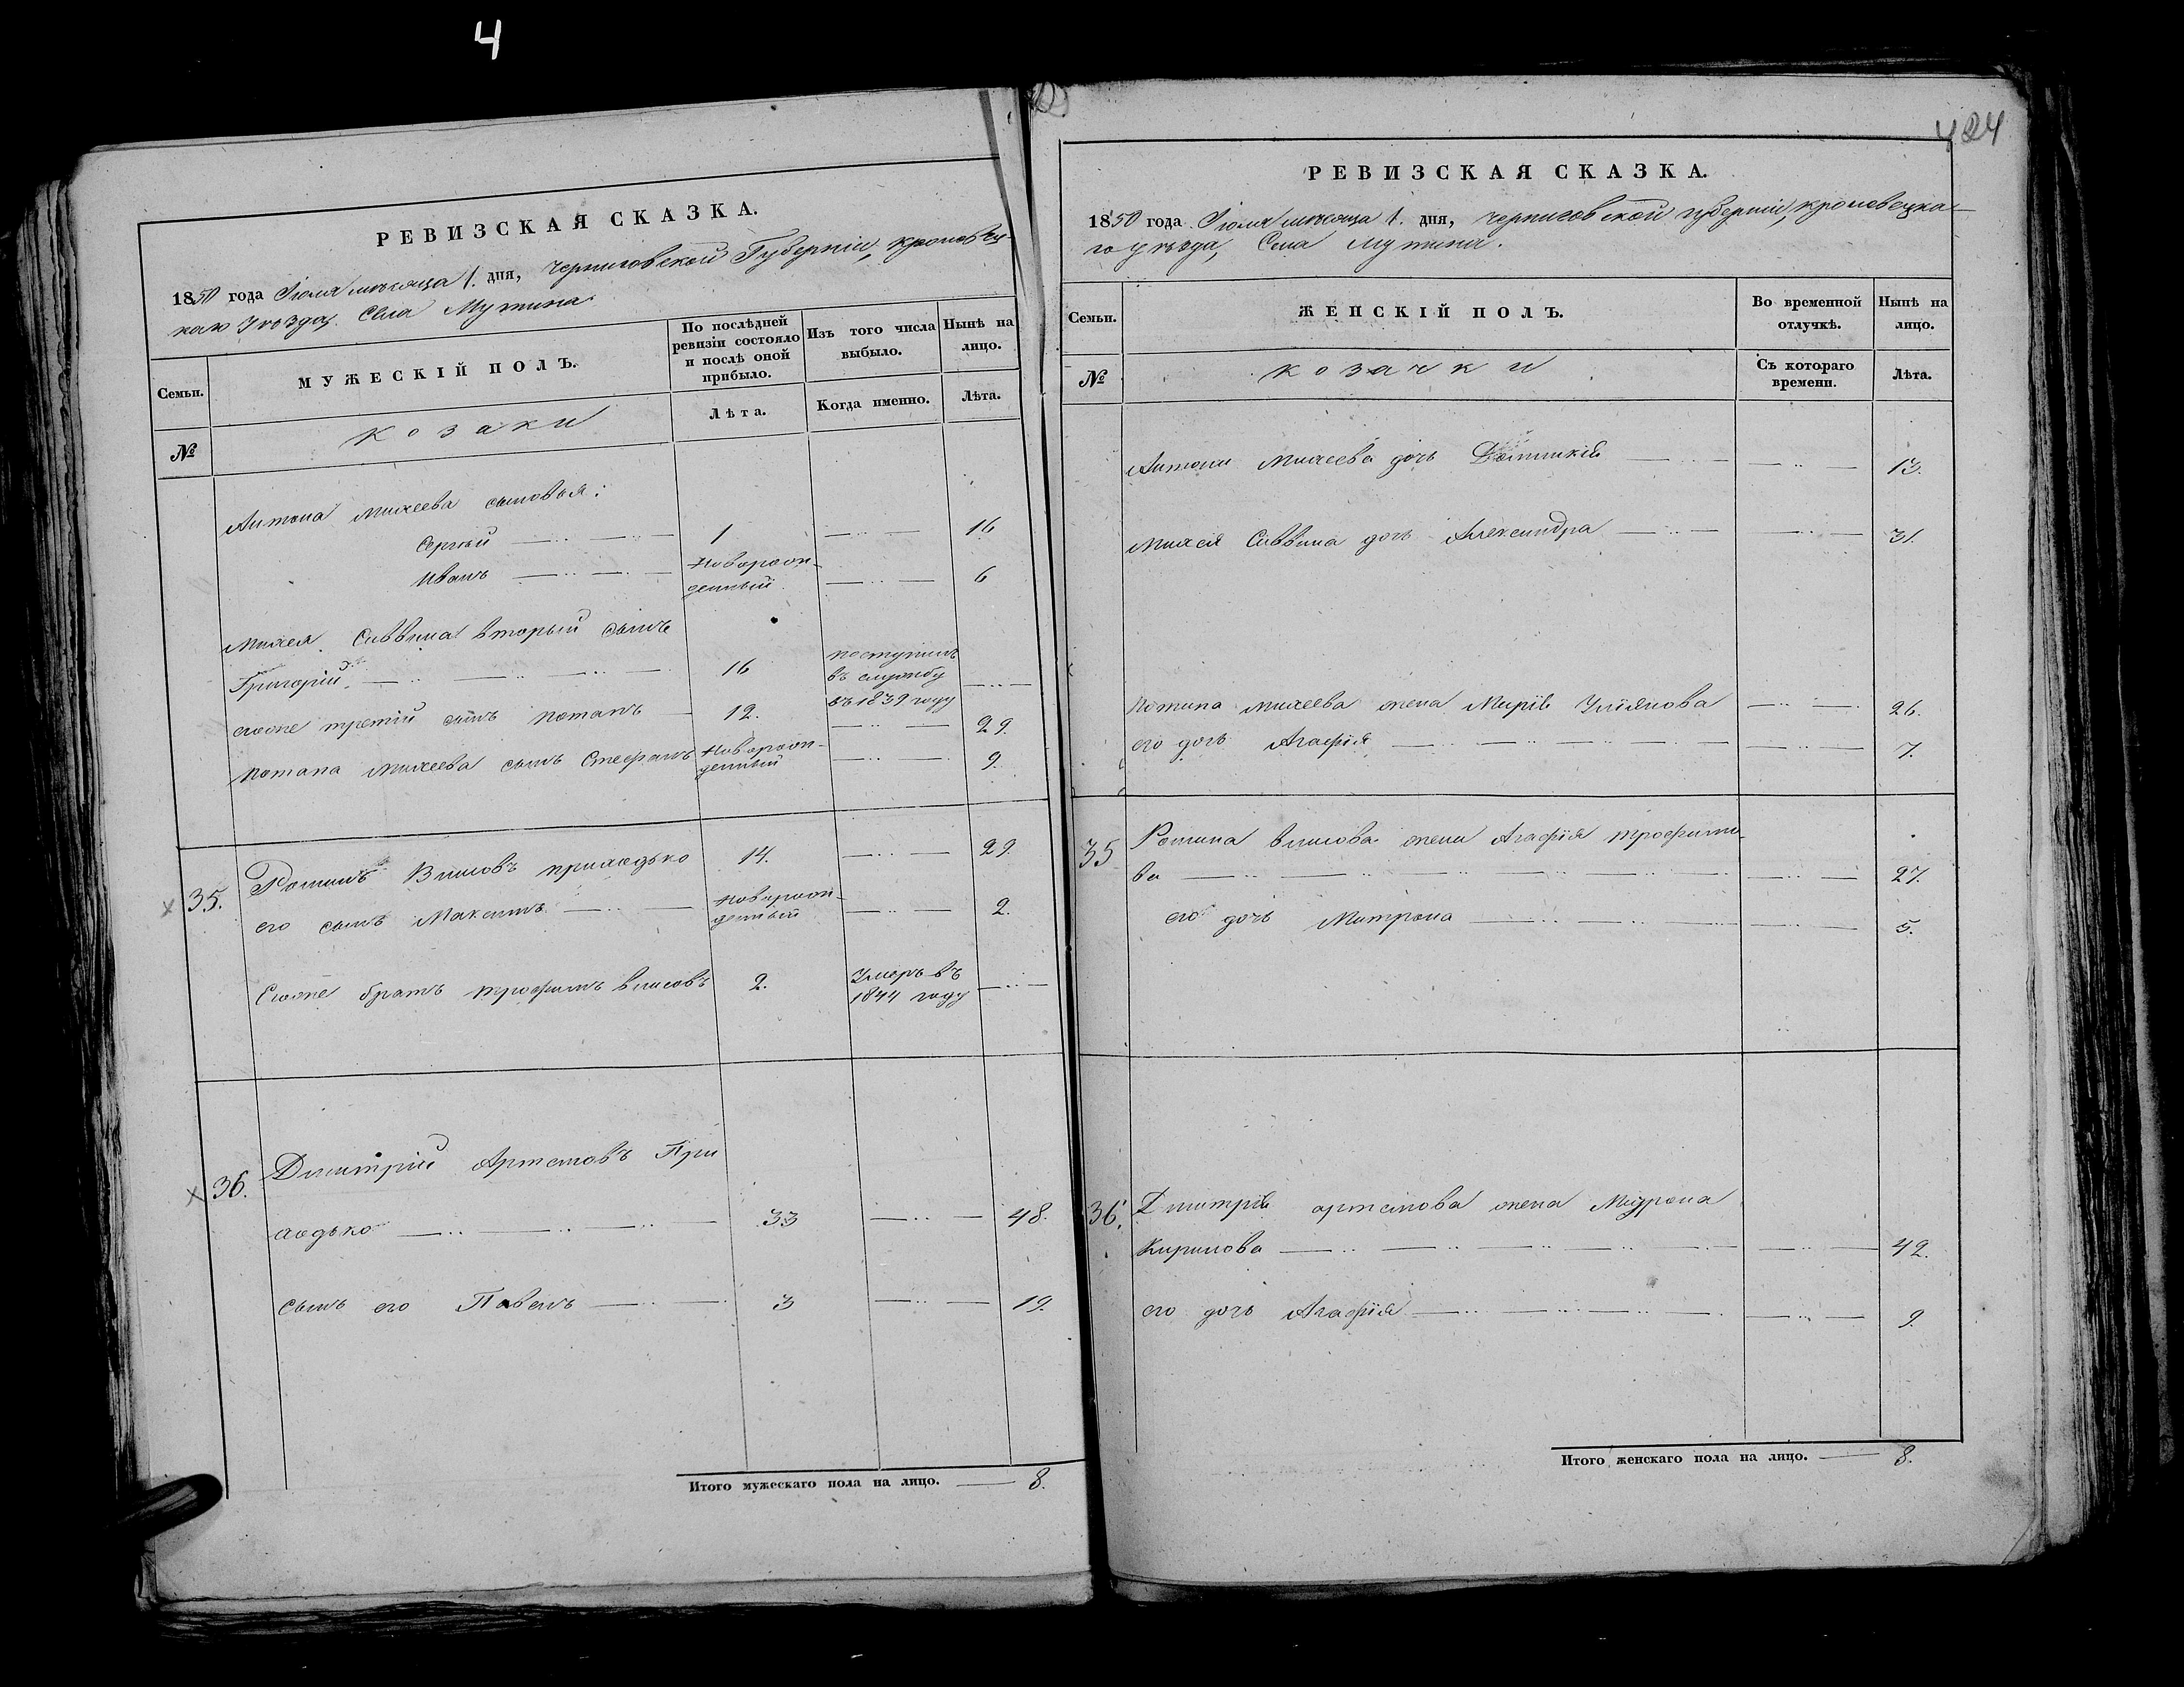 4
РЕВИЗСКАЯ СКАЗКА.
1850 года Іюля мѣсяца 1. дня, Черниговской Губерніи, Кролевец-
каго Уѣзда, Села Мутина.
Семьи.
МУЖЕСКІЙ ПОЛЪ.
По послѣдней ревизіи состояло и послѣ оной прибыло.
Изъ того числа выбыло.
Нынѣ на лицо.
Лѣта.
Когда именно.
Лѣта.
№
Козаки
Антона Михеева сыновья:
Сергѣй 1 16
Иванъ Новорож-
денный 6
Михея Саввина вторый сынъ
Григорій 16 поступилъ
въ службу
въ 1839 году
егоже третій сынъ Потапъ 12. 29.
Потапа Михеева сынъ Стефанъ Новорож-
денный 9.
35. Романъ Власовъ Приходько 14. 29.
его сынъ Максимъ Новорож-
денный 2.
Егоже братъ Трофимъ Власовъ 2. Умеръ въ
1844 году
36. Дмитрій Артемовъ При
ходько 33 48.
Сынъ его Павелъ 3 19.
Итого мужескаго пола на лицо. 8.
424
РЕВИЗСКАЯ СКАЗКА.
1850 года Іюля мѣсяца 1. дня, Черниговской губерніи, Кролевецка-
го уѣзда, Села Мутина.
Семьи.
ЖЕНСКІЙ ПОЛЪ.
Во временной отлучкѣ.
Нынѣ на лицо.
№
Козачки
Съ котораго времени.
Лѣта.
Антона Михеева дочь 13.
Михея Саввина дочь Александра 31.
Потапа Михеева жена Марія Уліянова 26.
его дочь Агафія 7.
35 Романа Власова жена Агафія Трофимо
ва 27.
его дочь Матрона 5.
36. Дмитрія Артемова жена
Кирилова 42.
его дочь Агафія 9.
Итого женскаго пола на лицо. 8.